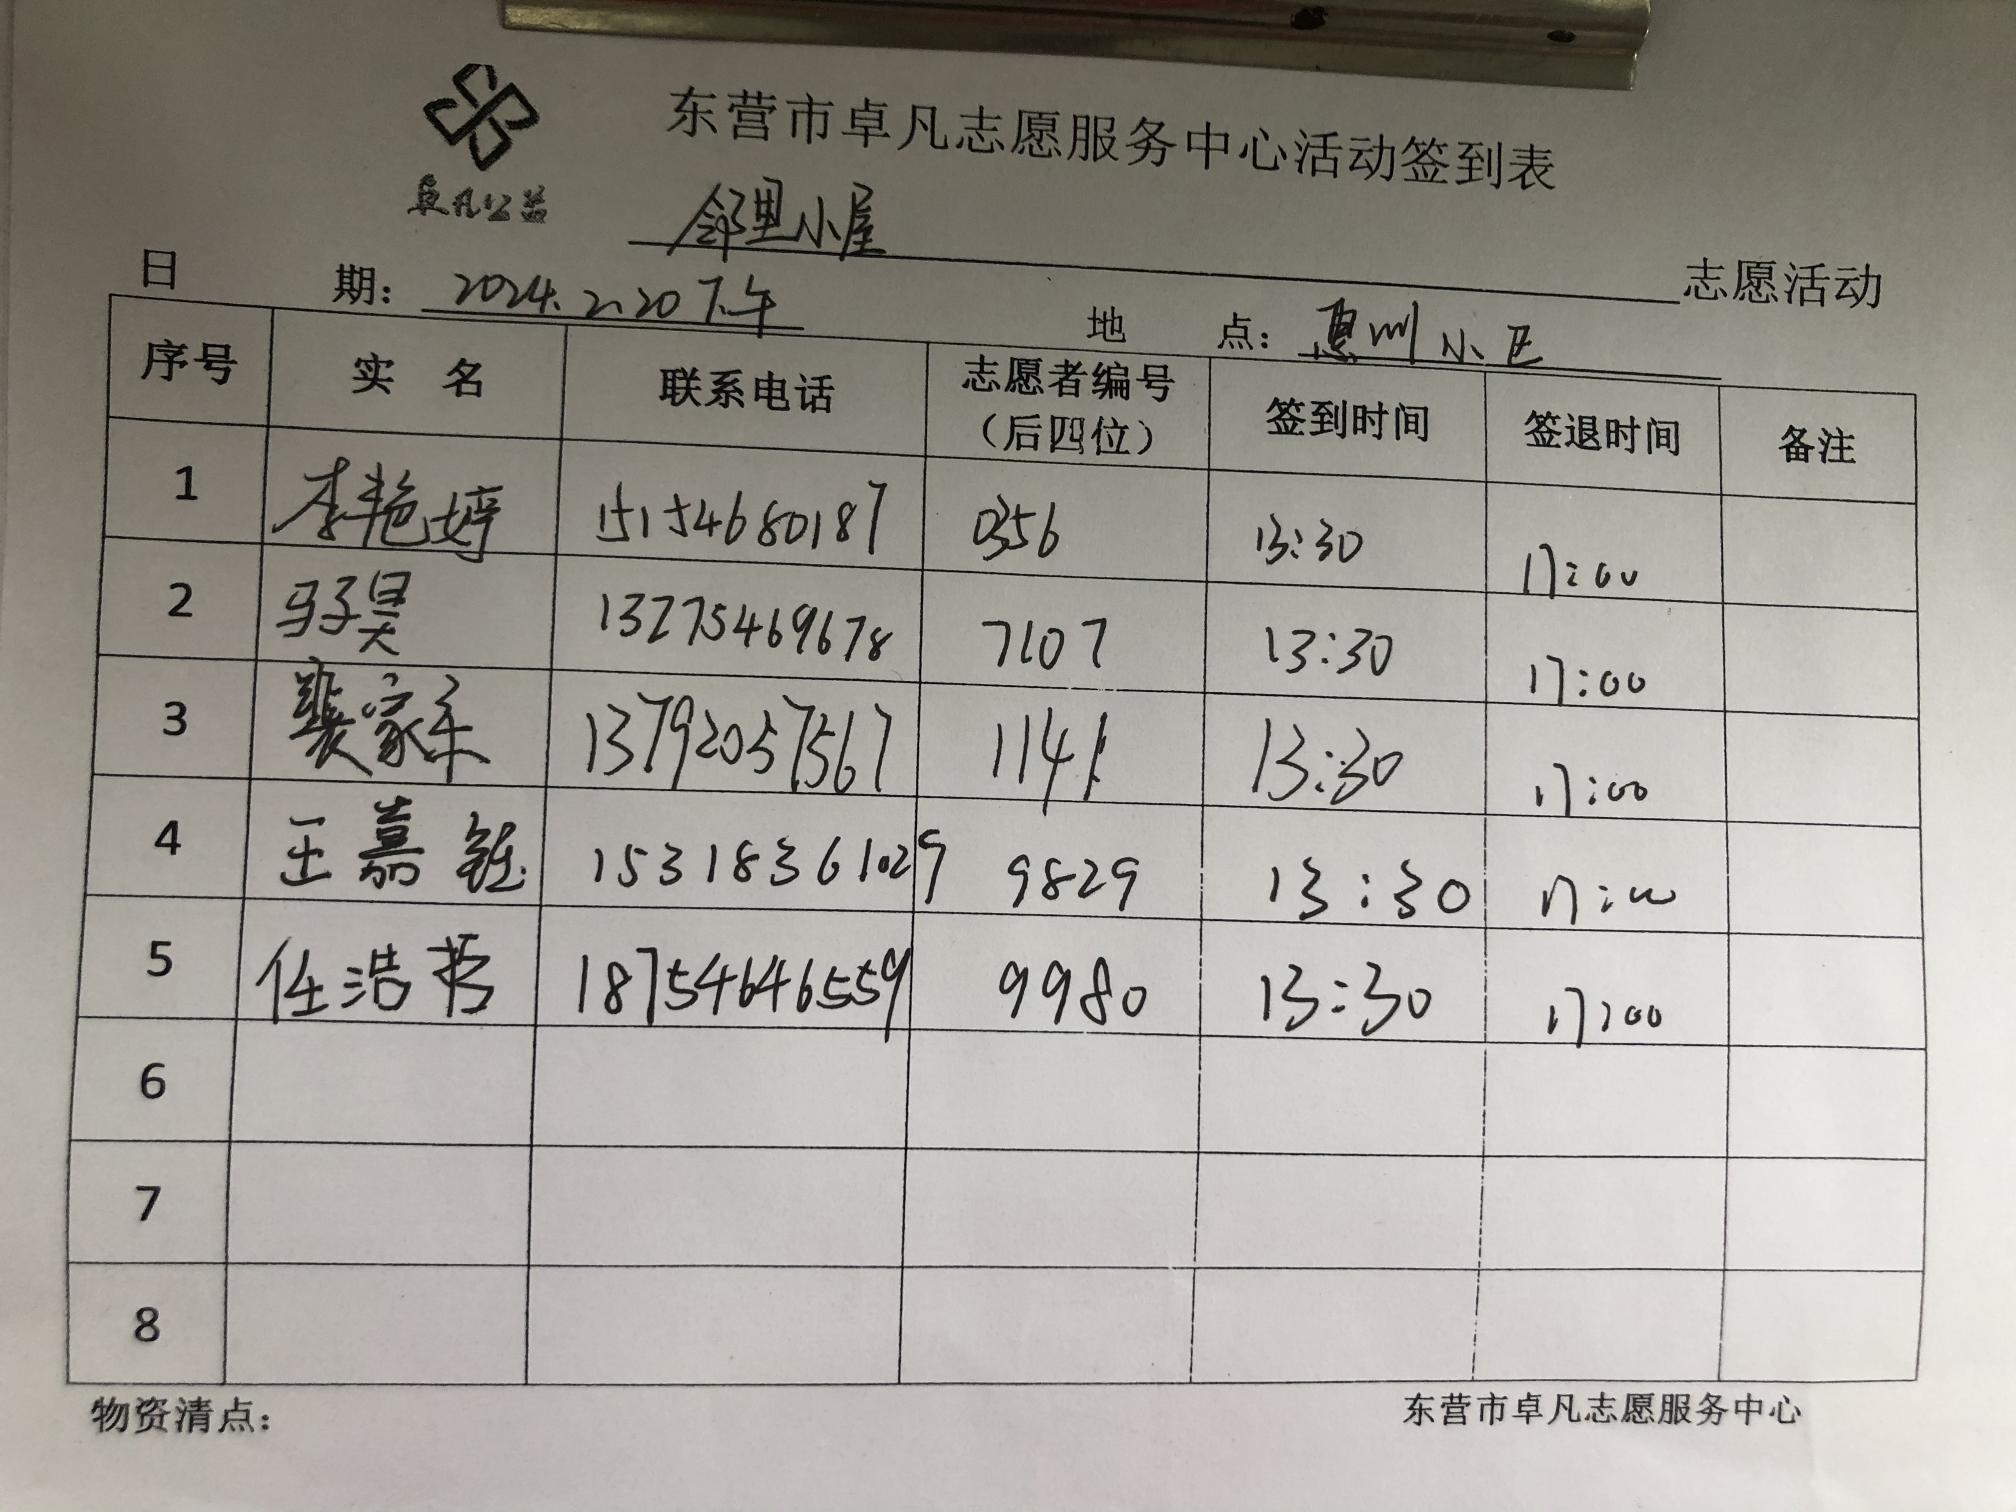 东营市卓凡志愿服务中心活动签到表
卓凡公益
邻里小屋 志愿活动
日 期: 2024.2.20下午 地 点: 惠州小区
序号 实 名 联系电话 志愿者编号（后四位） 签到时间 签退时间 备注
1 李艳婷 15154680187 0356 13:30 17:00
2 马子昊 13275469678 7107 13:30 17:00
3 裴家乐 13792057567 1141 13:30 17:00
4 王嘉钰 15318361029 9829 13:30 17:00
5 任浩哲 18754646559 9980 13:30 17:00
6
7
8
物资清点: 东营市卓凡志愿服务中心